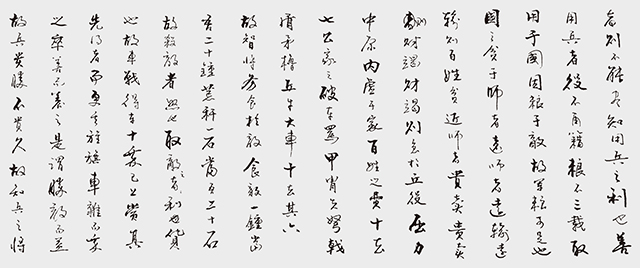 则不能尽知用兵之利也善
用兵者役不再籍粮不三載取
用于國因粮于敵故軍食可足也
國之貧于師者遠師者遠輸遠
輸则百姓貧近師者貴賣貴賣
则財竭財竭则急於丘役屈力
中原内虚于家百姓之費十去
七公家之破車罷甲胄矢弩戟
盾矛櫓丘牛大車十去其六
故智将务食於敵食敵一鍾當
吾二十鍾萁秆一石當吾二十石
故殺敵者怒也取敵之利也貨
也故車戰得車十乘已上賞其
先得者而更其旌旗車雜而乘
之卒善而養之是謂勝敵而益
故兵貴勝不貴久故知兵之将